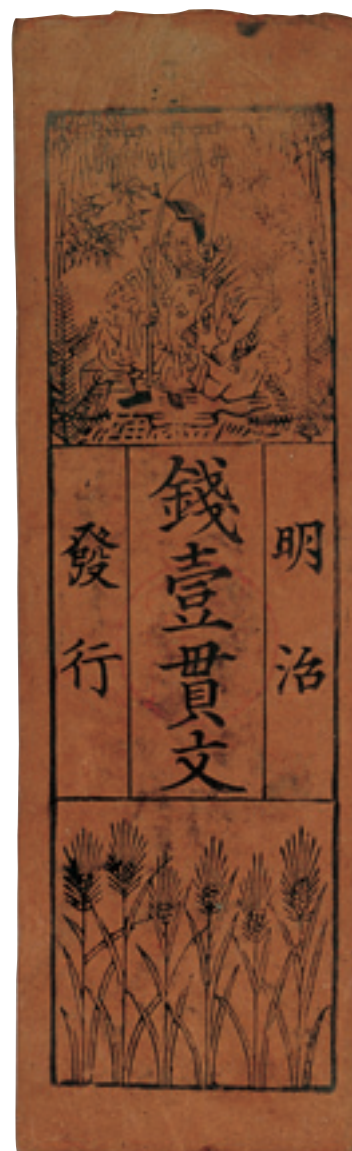 明治
錢壹貫文
發行